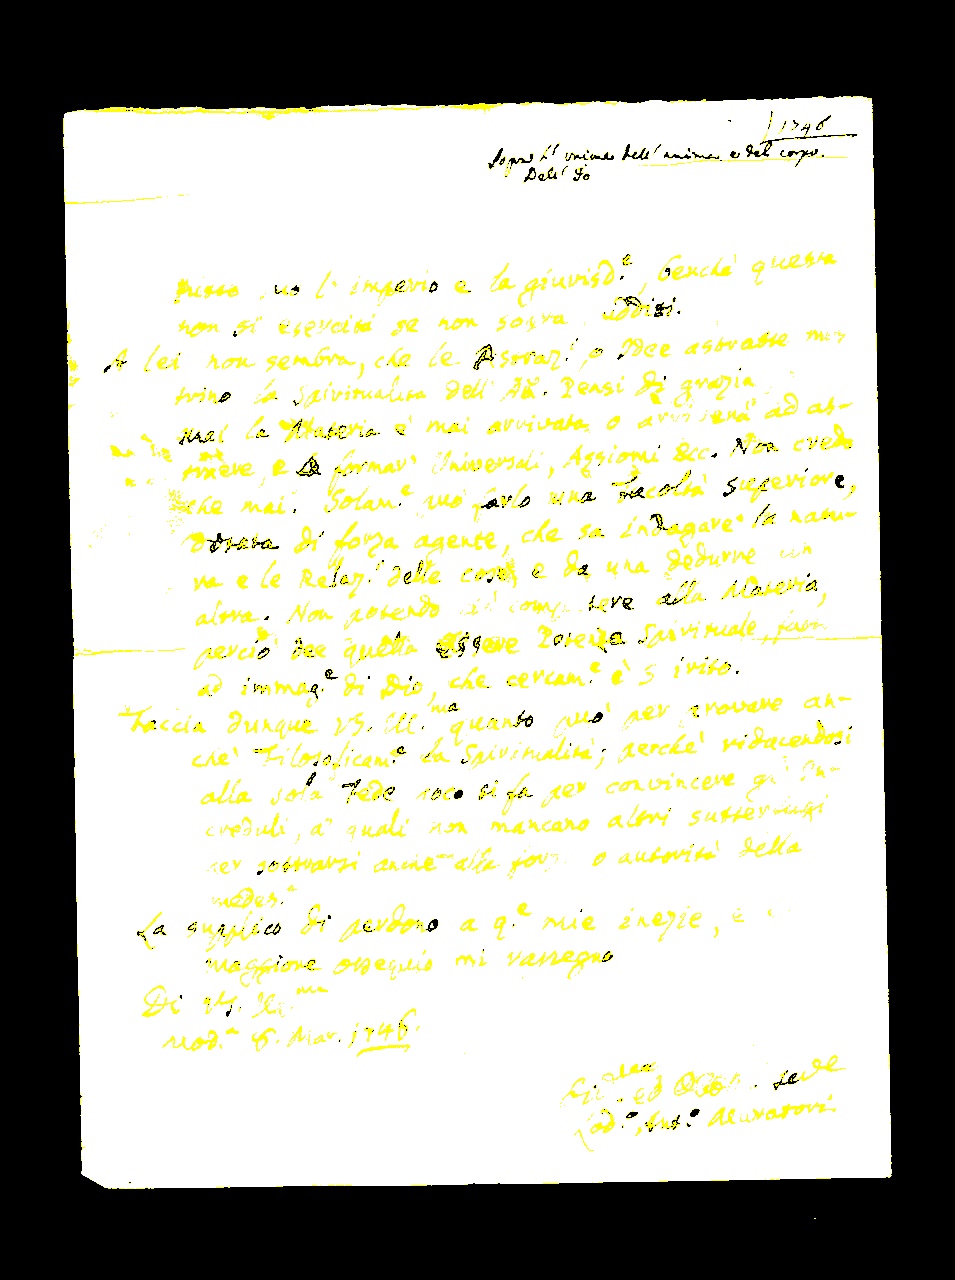 1746
Sopra l' unione dell' anima e del corpo.
Dell' Io
l' imperio e la giurisd.e, benchè questa
non si eserciti se non sovra
A lei non sembra, che le Astraz.i o Idee astratte mos
trino la Spiritualità dell' An. Pensi di grazia
mai la Materia è mai arrivata o arriverà ad as-
traere, e a formar' Universali, Assiomi &c. Non creda
che mai. Solam.e può farlo una Facoltà superiore,
dotata di forza agente, che sa indagare la natu-
ra e le Relaz.i delle cose, e da una dedurne un
altra. Non potendo ciò competere alla Materia,
perciò dee quella essere Potenza Spirituale,
ad immag.e di Dio, che certam.e è Spirito.
Faccia dunque VS. Ill.ma quanto può per provare an-
che Filosoficam.e la Spiritualità; perchè riducendosi
alla sola Fede poco si fa per convincere gl' In-
creduli, a' quali non mancano altri sutterfugi
per sottrarsi anche alla forza o autorità della
medes.a
La supplico di perdono a q.e mie inezie, e
maggiore ossequio mi rassegno
Di VS. Ill.ma
Mod.a 6. Mar. 1746.
ed Obb. Serv.e
Lod.o Ant.o Muratori